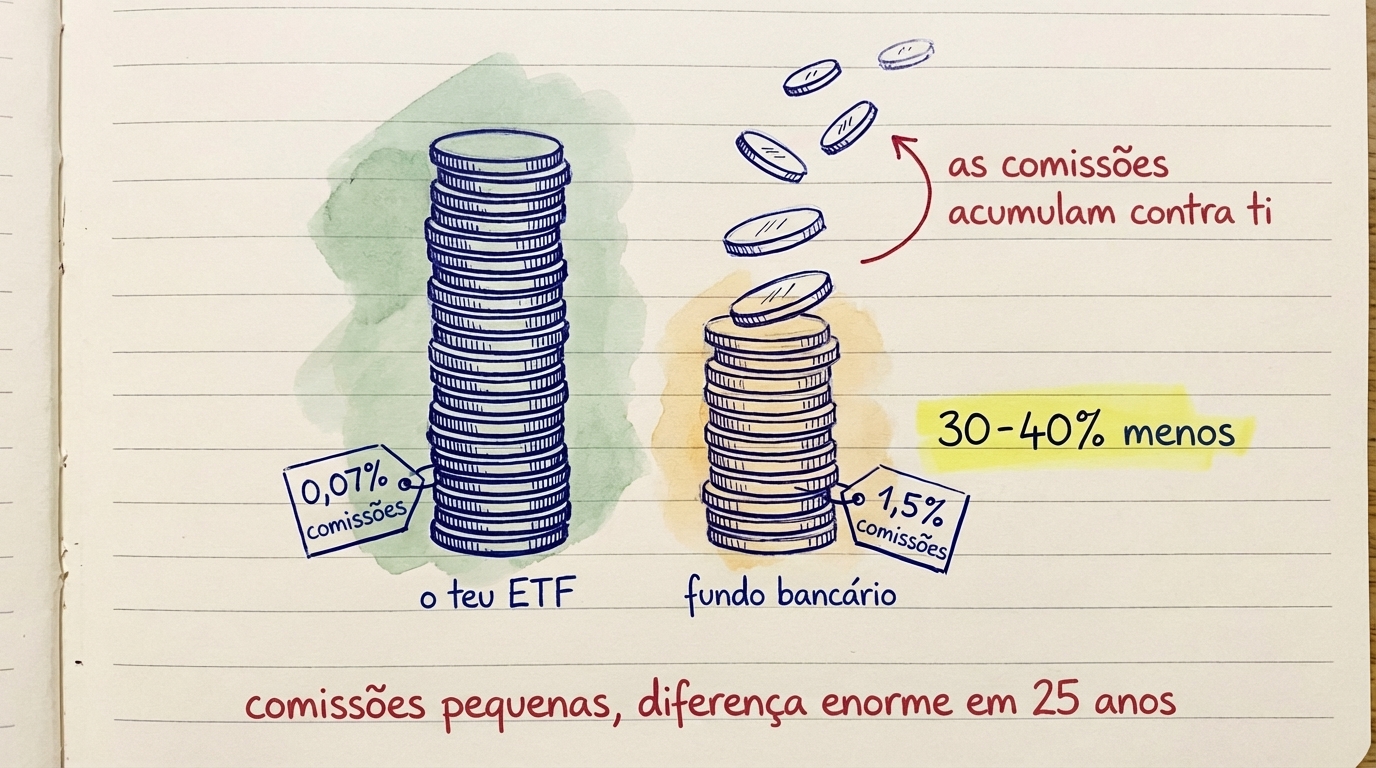 as comissões
acumulam contra ti
30-40% menos
0,07%
comissões
1,5%
comissões
o teu ETF
fundo bancário
comissões pequenas, diferença enorme em 25 anos